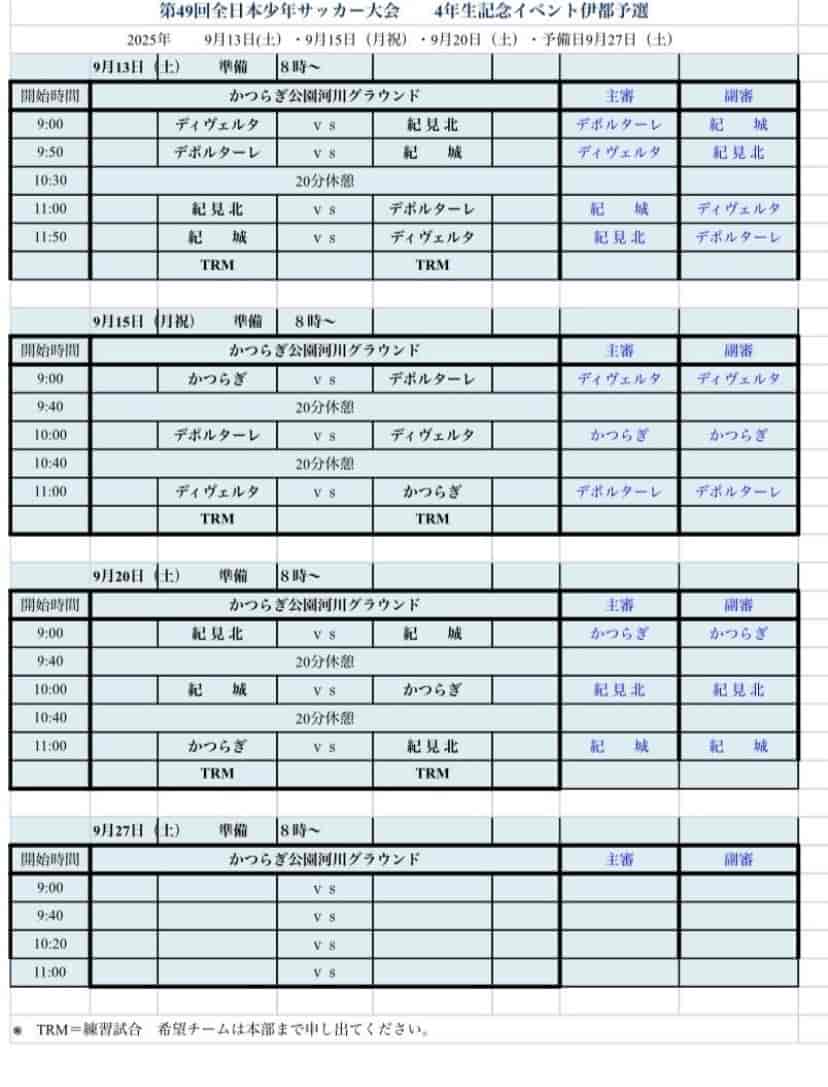 第49回全日本少年サッカー大会　　4年生記念イベント伊都予選
2025年　　9月13日(土）・9月15日（月祝）・9月20日（土）・予備日9月27日（土）
9月13日（土）　準備　8時～
開始時間　かつらぎ公園河川グラウンド　主審　副審
9:00　ディヴェルタ　ｖｓ　紀見北　デポルターレ　紀　城
9:50　デポルターレ　ｖｓ　紀　城　ディヴェルタ　紀見北
10:30　20分休憩
11:00　紀見北　ｖｓ　デポルターレ　紀　城　ディヴェルタ
11:50　紀　城　ｖｓ　ディヴェルタ　紀見北　デポルターレ
TRM　TRM
9月15日（月祝）　準備　８時～
開始時間　かつらぎ公園河川グラウンド　主審　副審
9:00　かつらぎ　ｖｓ　デポルターレ　ディヴェルタ　ディヴェルタ
9:40　20分休憩
10:00　デポルターレ　ｖｓ　ディヴェルタ　かつらぎ　かつらぎ
10:40　20分休憩
11:00　ディヴェルタ　ｖｓ　かつらぎ　デポルターレ　デポルターレ
TRM　TRM
9月20日（土）　準備　８時～
開始時間　かつらぎ公園河川グラウンド　主審　副審
9:00　紀見北　ｖｓ　紀　城　かつらぎ　かつらぎ
9:40　20分休憩
10:00　紀　城　ｖｓ　かつらぎ　紀見北　紀見北
10:40　20分休憩
11:00　かつらぎ　ｖｓ　紀見北　紀　城　紀　城
TRM　TRM
9月27日（土）　準備　８時～
開始時間　かつらぎ公園河川グラウンド　主審　副審
9:00　ｖｓ
9:40　ｖｓ
10:20　ｖｓ
11:00　ｖｓ
◉　TRM＝練習試合　希望チームは本部まで申し出てください。